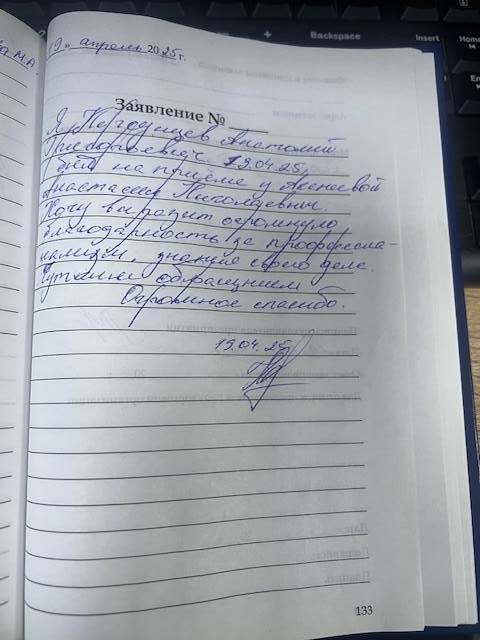 19 » апрель 2025 г.
Заявление №
Я, Кердунцев Анатолий
Григорьевич 19.04.25г
был на приёме у Акеневой
Анастасии Николаевич.
Хочу выразит огромную
благодарность за профессиа-
нализм, знания своего дела.
Чутким обращением
Огромное спасибо.
19.04.25
133
Backspace
Insert
Home